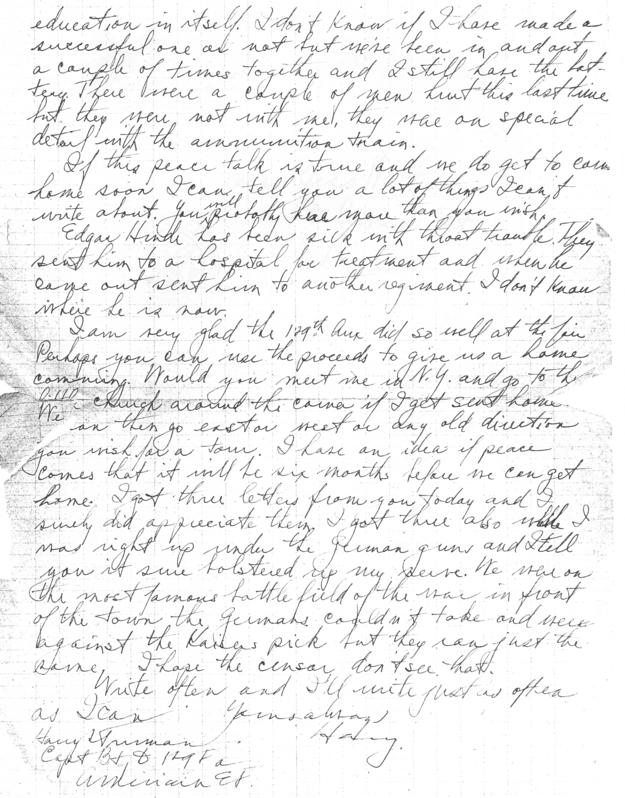 education in itself. I don't know if I have made a
successful one or not but we've been in and out
a couple of times together and I still have the bat-
tery. There were a couple of men hurt this last time
but they were not with me, they were on special
detail with the ammunition train.
If this peace talk is true and we do get to come
home soon I can tell you a lot of things I can't
write about. You will probably hear more than you wish.
Edgar Hinde has been sick with throat trouble. They
sent him to a hospital for treatment and when he
came out sent him to another regiment. I don't know
where he is now.
I am very glad the 129th Aux did so well at the fair
Perhaps you can use the proceeds to give us a home
coming. Would you meet me in N.Y. and go to the
little church around the corner if I get sent home.
We can then go east or west or any old direction
you wish for a tour. I have an idea if peace
comes that it will be six months before we can get
home. I got three letters from you today and I
surely did appreciate them. I got three also while I
was right up under the German guns and I tell
you it sure bolstered up my nerve. We were on
the most famous battle field of the war in front
of the town the Germans couldn't take and were
against the Kaisers pick but they ran just the
same. I hope the censor don't see that.
Write often and I'll write just as often
as I can Yours always
Harry.
Harry S Truman
Capt Bt D 129 F a
American E F.